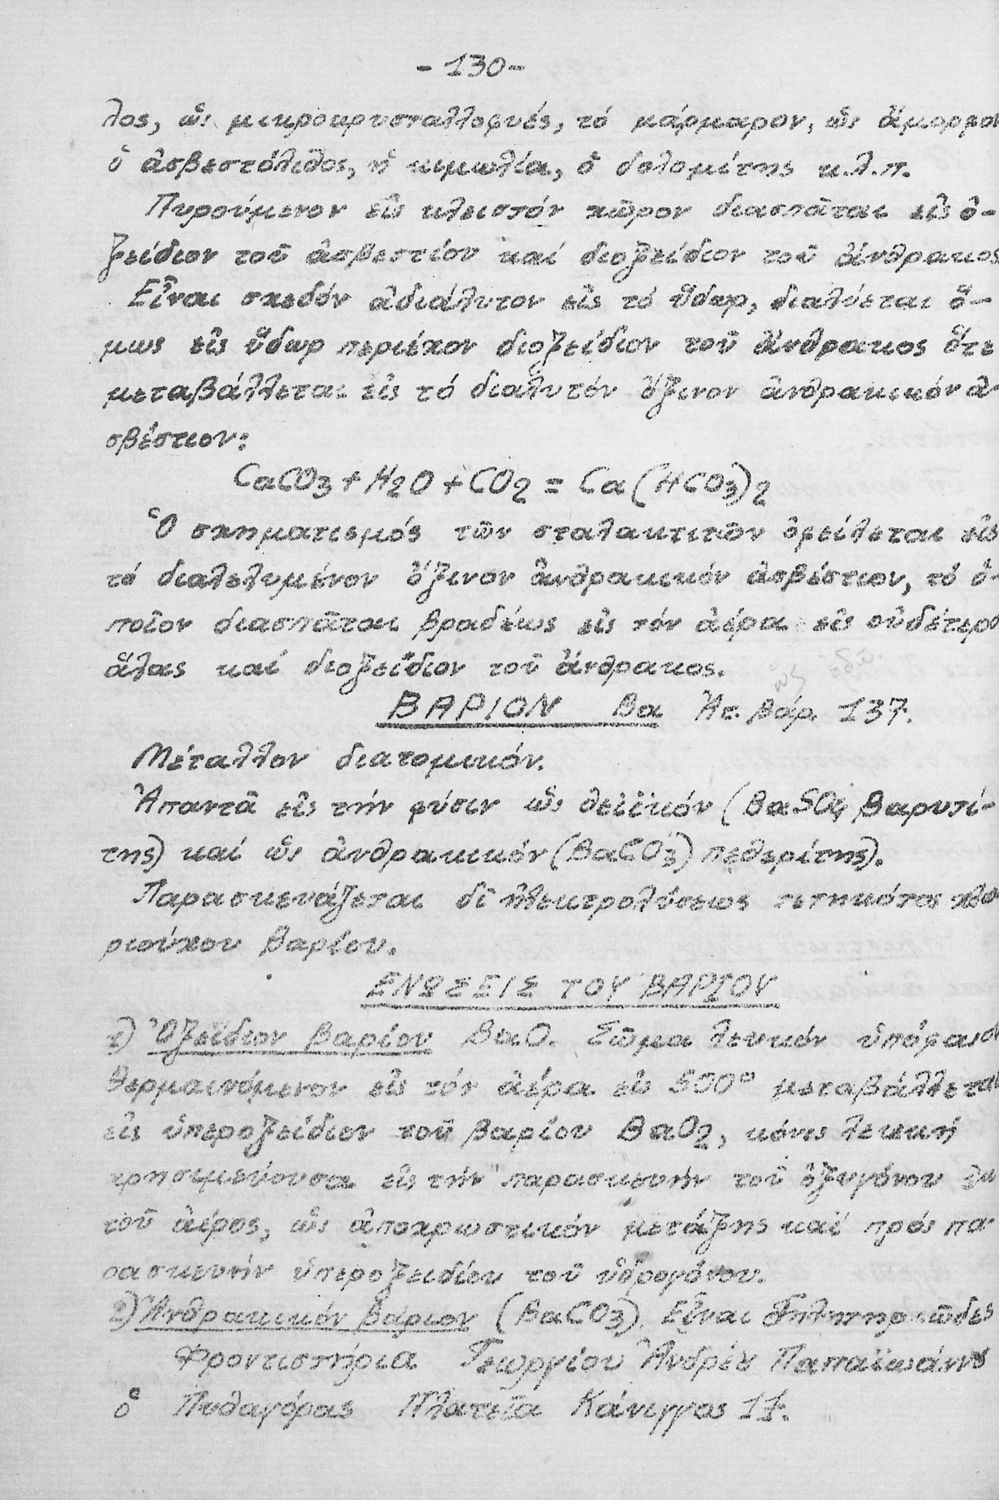 - 130 -
λος, ὡς μικροκρυσταλλοφυές, τό μάρμαρον, ὡς ἄμορφον
ὁ ἀσβεστόλιθος, ἡ κιμωλία, ὁ δολομίτης κ.λ.π.
Πυρούμενον εἰς κλειστόν χῶρον διασπᾶται εἰς ὀ-
ξείδιον τοῦ ἀσβεστίου καί διοξείδιον τοῦ ἄνθρακος
Εἶναι σχεδόν ἀδιάλυτον εἰς τό ὕδωρ, διαλύεται ὅ-
μως εἰς ὕδωρ περιέχον διοξείδιον τοῦ ἄνθρακος ὅτε
μεταβάλλεται εἰς τό διαλυτόν ὄξινον ἀνθρακικόν ἀ-
σβέστιον:
CaCO3 + H2O + CO2 = Ca(HCO3)2
Ὁ σχηματισμός τῶν σταλακτιτῶν ὀφείλεται εἰς
τό διαλελυμένον ὄξινον ἀνθρακικόν ἀσβέστιον, τό ὁ-
ποῖον διασπᾶται βραδέως εἰς τόν ἀέρα εἰς οὐδέτερο
ἅλας καί διοξείδιον τοῦ ἄνθρακος.
ὡς ἐδῶ.
ΒΑΡΙΟΝ Ba Ἀτ. βάρ. 137.
Μέταλλον διατομικόν.
Ἀπαντᾶ εἰς τήν φύσιν ὡς θειϊκόν (BaSO4 βαρυτί-
της) καί ὡς ἀνθρακικόν (BaCO3) πεθερίτης).
Παρασκευάζεται δι' ἠλεκτρολύσεως τετηκότος χλω
ριούχου βαρίου.
ΕΝΩΣΕΙΣ ΤΟΥ ΒΑΡΙΟΥ
1) Ὀξείδιον βαρίου BaO. Σῶμα λευκόν ὑπόφαιον
θερμαινόμενον εἰς τόν ἀέρα εἰς 500° μεταβάλλεται
εἰς ὑπεροξείδιον τοῦ βαρίου BaO2, κόνις λευκή
χρησιμεύουσα εἰς τήν παρασκευήν τοῦ ὀξυγόνου ἐκ
τοῦ ἀέρος, ὡς ἀποχρωστικόν μετάξης καί πρός πα-
ρασκευήν ὑπεροξειδίου τοῦ ὑδρογόνου.
2) Ἀνθρακικόν βάριον (BaCO3). Εἶναι δηλητηριῶδες
Φροντιστήρια Γεωργίου Ἀνδρέα Παπαϊωάννου
ὁ Πυθαγόρας Πλατεῖα Κάνιγγος 17.